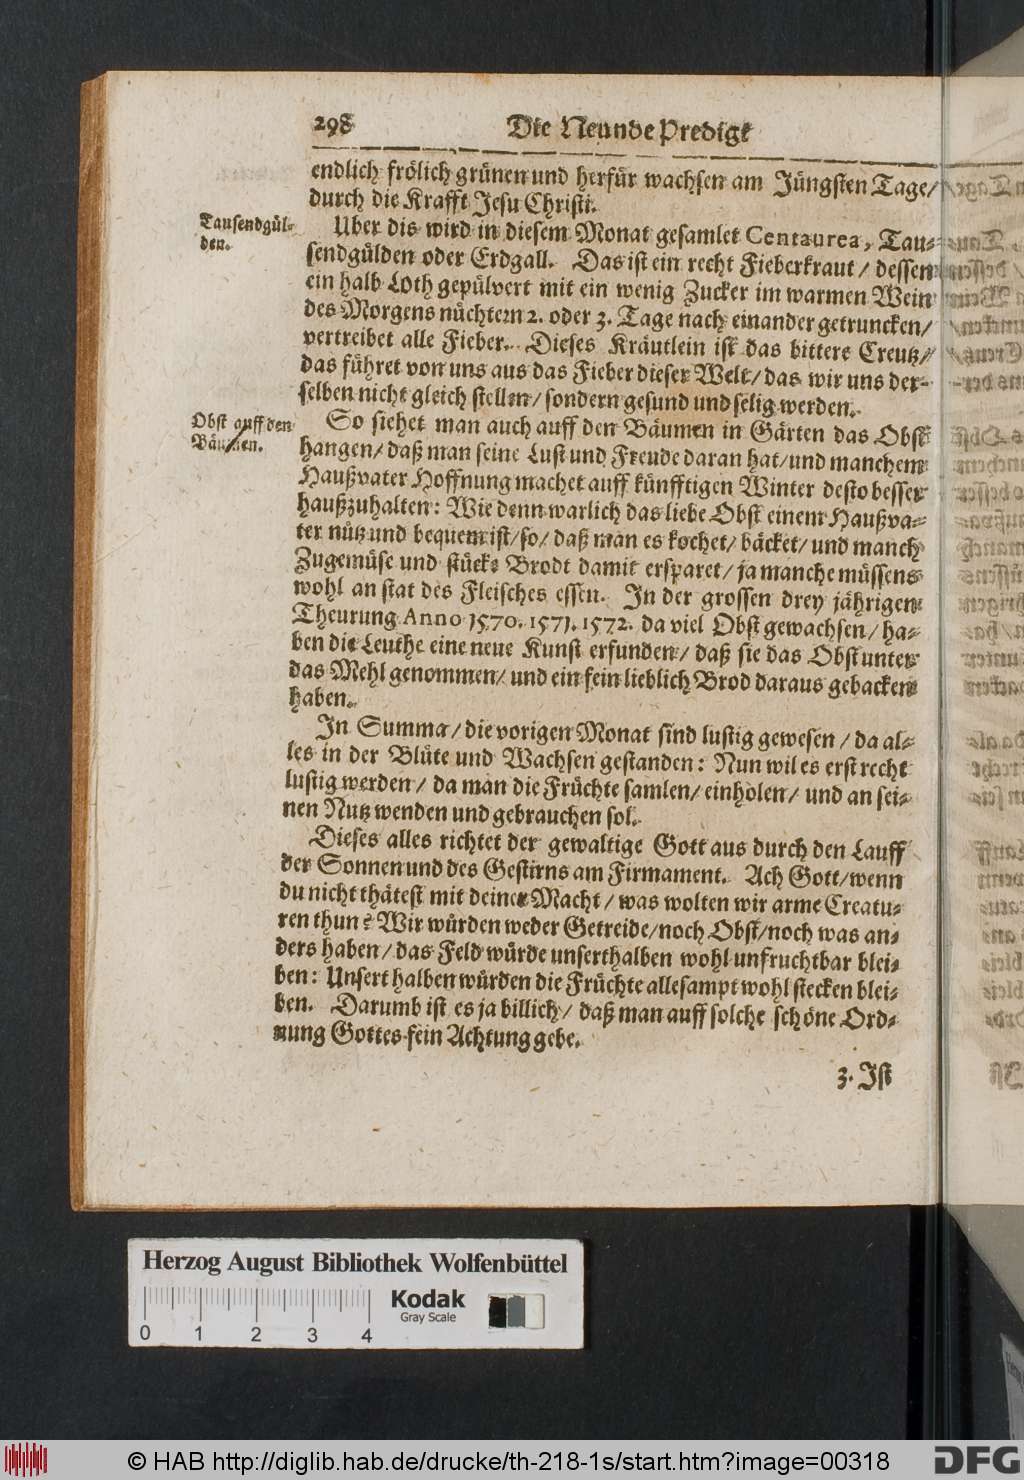 298 Die Neunde Predigt
endlich frölich grünen und herfür wachsen am Jüngsten Tage/
durch die Krafft Jesu Christi.
Tausendgül-
den.
Uber dis wird in diesem Monat gesamlet Centaurea, Tau-
sendgülden oder Erdgall. Das ist ein recht Fieberkraut/ dessen
ein halb Loth gepülvert mit ein wenig Zucker im warmen Wein
des Morgens nüchtern 2. oder 3. Tage nach einander getruncken/
vertreibet alle Fieber. Dieses Kräutlein ist das bittere Creutz/
das führet von uns aus das Fieber dieser Welt/ das wir uns der-
selben nicht gleich stellen/ sondern gesund und selig werden.
Obst auff den
Bäumen.
So siehet man auch auff den Bäumen in Gärten das Obst
hangen/ daß man seine Lust und Freude daran hat/ und manchem
Haußvater Hoffnung machet auff künfftigen Winter desto besser
haußzuhalten: Wie denn warlich das liebe Obst einem Haußva-
ter nütz und bequem ist/ so/ daß man es kochet/ bäcket/ und manch
Zugemüse und stücke Brodt damit ersparet/ ja manche müssens
wohl an stat des Fleisches essen. In der grossen drey jährigen
Theurung Anno 1570. 1571. 1572. da viel Obst gewachsen/ ha-
ben die Leuthe eine neue Kunst erfunden/ daß sie das Obst unter
das Mehl genommen/ und ein fein lieblich Brod daraus gebacken
haben.
In Summa/ die vorigen Monat sind lustig gewesen/ da al-
les in der Blüte und Wachsen gestanden: Nun wil es erst recht
lustig werden/ da man die Früchte samlen/ einholen/ und an sei-
nen Nutz wenden und gebrauchen sol.
Dieses alles richtet der gewaltige Gott aus durch den Lauff
der Sonnen und des Gestirns am Firmament. Ach Gott/ wenn
du nicht thätest mit deiner Macht/ was wolten wir arme Creatu-
ren thun? Wir würden weder Getreide/ noch Obst/ noch was an-
ders haben/ das Feld würde unserthalben wohl unfruchtbar blei-
ben: Unsert halben würden die Früchte allesampt wohl stecken blei-
ben. Darumb ist es ja billich/ daß man auff solche schöne Ord-
nung Gottes fein Achtung gebe.
3. Ist
Herzog August Bibliothek Wolfenbüttel
0 1 2 3 4
Kodak
Gray Scale
© HAB http://diglib.hab.de/drucke/th-218-1s/start.htm?image=00318
DFG